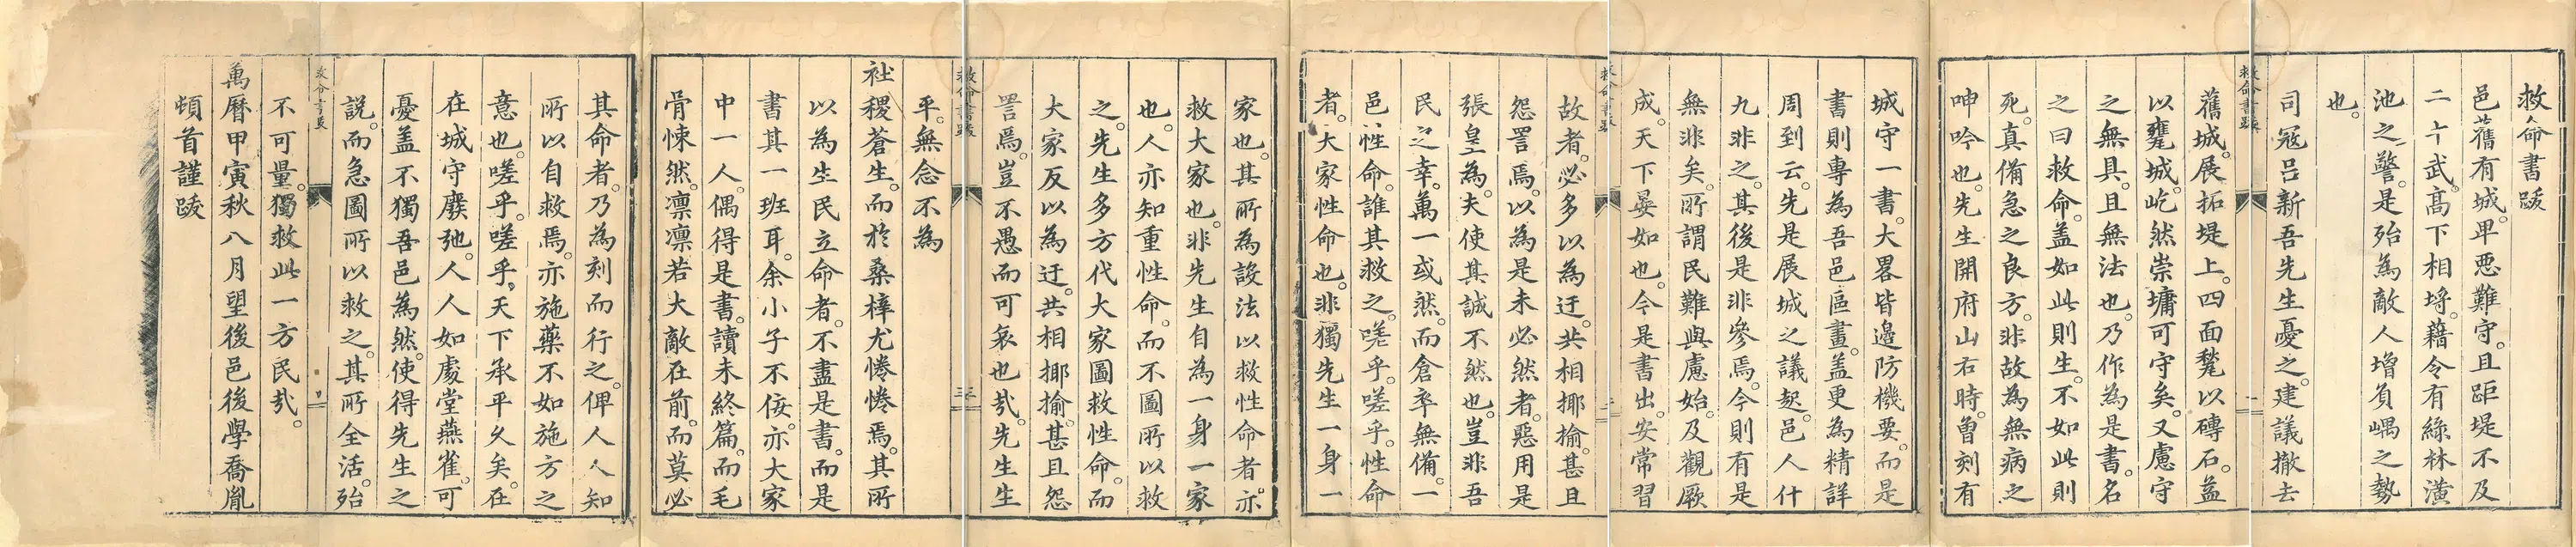 救命書跋
邑舊有城。卑惡難守。且距堤不及
二十武。高下相埓。藉令有綠林潢
池之警。是殆為敵人增負嵎之勢
也。
司寇呂新吾先生憂之。建議撤去
舊城。展拓堤上。四面甃以磚石。益
以甕城。屹然崇墉可守矣。又慮守
之無具。且無法也。乃作為是書。名
之曰救命。盖如此則生。不如此則
死。真備急之良方。非故為無病之
呻吟也。先生開府山右時。曾刻有
城守一書。大畧皆邊防機要。而是
書則專為吾邑區畫。盖更為精詳
周到云。先是展城之議起。邑人什
九非之。其後是非參焉。今則有是
無非矣。所謂民難與慮始。及觀厥
成。天下晏如也。今是書出。安常習
故者。必多以為迂。共相揶揄。甚且
怨詈焉。以為是未必然者。惡用是
張皇為。夫使其誠不然也。豈非吾
民之幸。萬一或然。而倉卒無備。一
邑性命。誰其救之。嗟乎。嗟乎。性命
者。大家性命也。非獨先生一身一
家也。其所為設法以救性命者。亦
救大家也。非先生自為一身一家
也。人亦知重性命。而不圖所以救
之。先生多方代大家圖救性命。而
大家反以為迂。共相揶揄。甚且怨
詈焉。豈不愚而可哀也㢤。先生生
平。無念不為
社稷蒼生。而於桑梓尤惓惓焉。其所
以為生民立命者。不盡是書。而是
書其一班耳。余小子不佞。亦大家
中一人。偶得是書。讀未終篇。而毛
骨悚然。凛凛若大敵在前。而莫必
其命者。乃為刻而行之。俾人人知
所以自救焉。亦施藥不如施方之
意也。嗟乎。嗟乎。天下承平久矣。在
在城守廢弛。人人如處堂燕雀。可
憂盖不獨吾邑為然。使得先生之
說。而急圖所以救之。其所全活。殆
不可量。獨救此一方民㢤。
萬曆甲寅秋八月望後邑後學喬胤
頓首謹跋